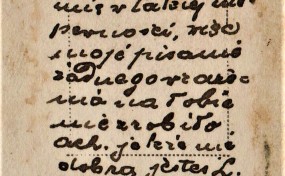 mię w takiej nie
pewności, więc
moje pisanie
żadnego wraże-
nia na Tobie
nie zrobiło
ach. jakże nie
dobra jesteś L.